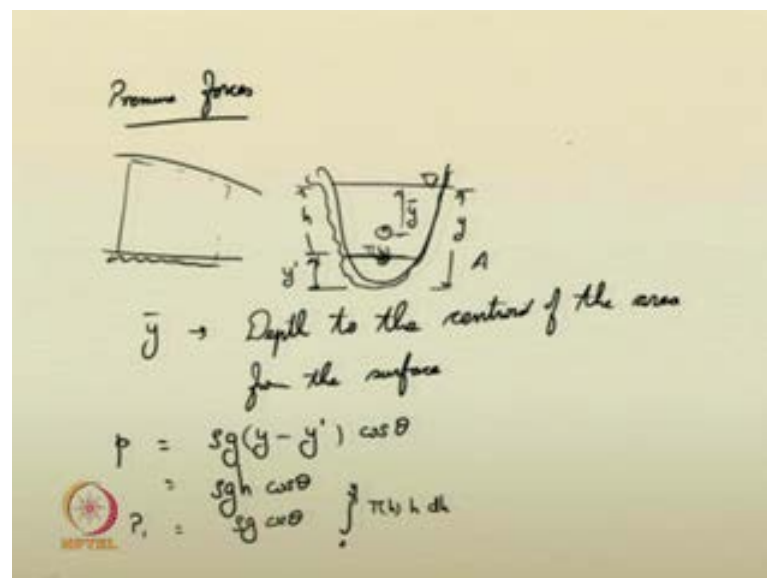 Pressure forces
h
y'
T(h)
ȳ
y
A
ȳ → Depth to the centroid of the area
from the surface
p = ρg(y - y') cosθ
= ρgh cosθ
P₁ = ρg cosθ ∫ T(h) h dh
NPTEL